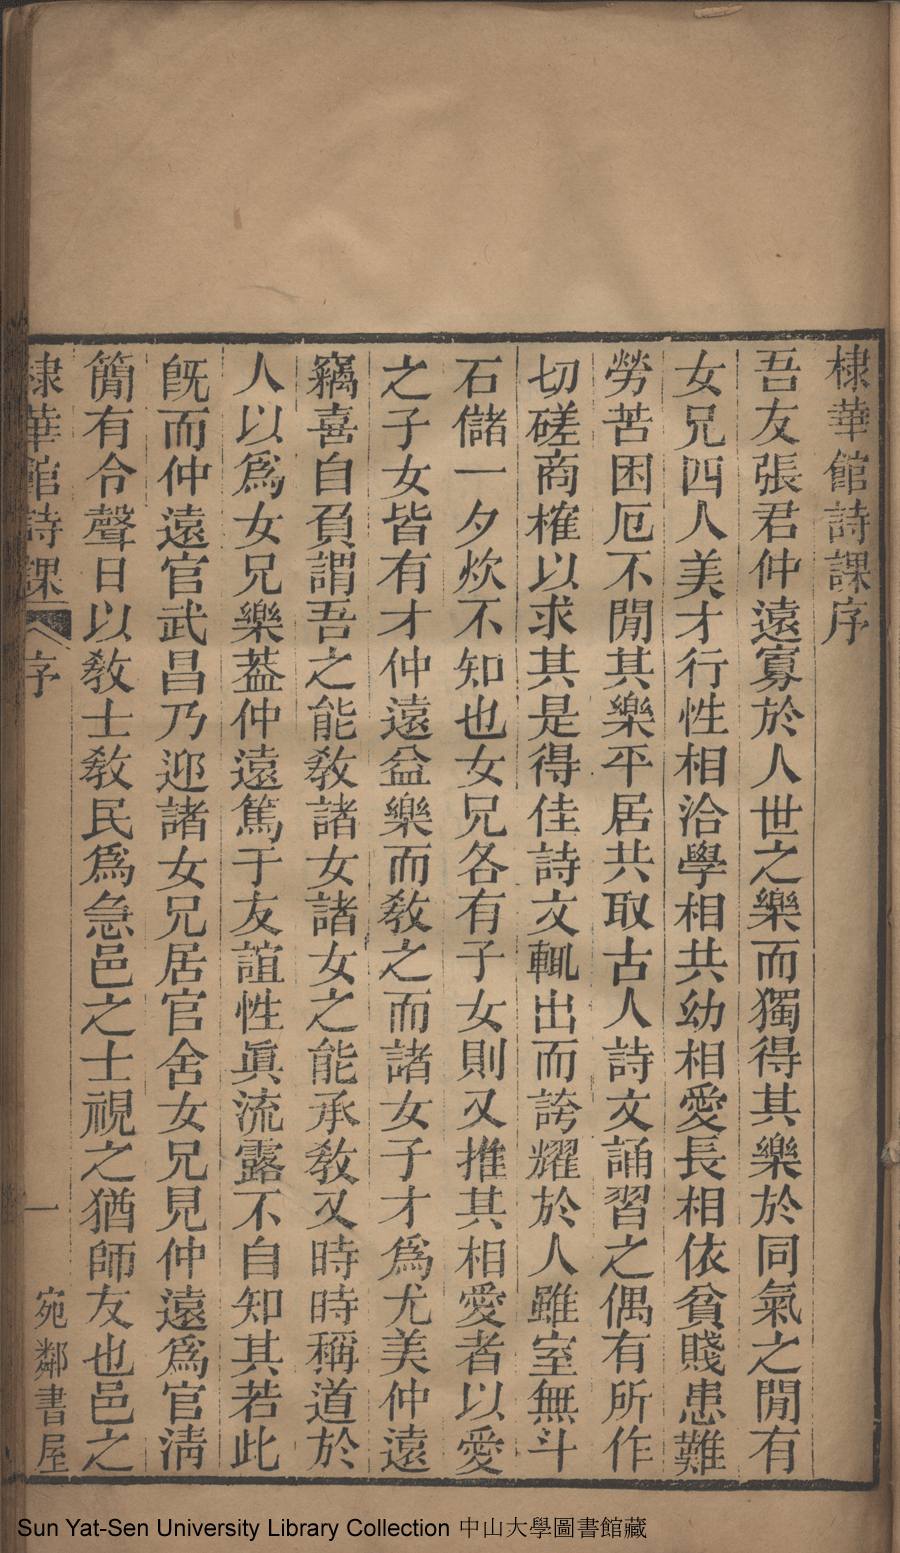 棣華館詩課序
吾友張君仲遠寡於人世之樂而獨得其樂於同氣之閒有
女兄四人美才行性相洽學相共幼相愛長相依貧賤患難
勞苦困厄不閒其樂平居共取古人詩文誦習之偶有所作
切磋商榷以求其是得佳詩文輒出而誇耀於人雖室無斗
石儲一夕炊不知也女兄各有子女則又推其相愛者以愛
之子女皆有才仲遠益樂而敎之而諸女子才爲尤美仲遠
竊喜自負謂吾之能敎諸女諸女之能承敎又時時稱道於
人以爲女兄樂葢仲遠篤于友誼性眞流露不自知其若此
旣而仲遠官武昌乃迎諸女兄居官舍女兄見仲遠爲官淸
簡有令聲日以敎士敎民爲急邑之士視之猶師友也邑之
棣華館詩課 序 一 宛鄰書屋
Sun Yat-Sen University Library Collection 中山大學圖書館藏